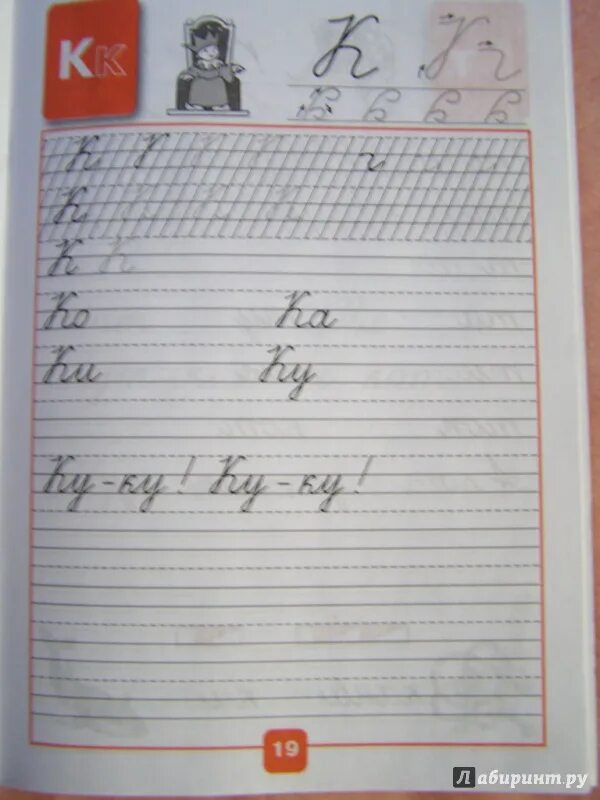 Кк К
К К
К К
Ко Ка
Ки Ку
Ку-ку! Ку-ку!
19
Лабиринт.ру